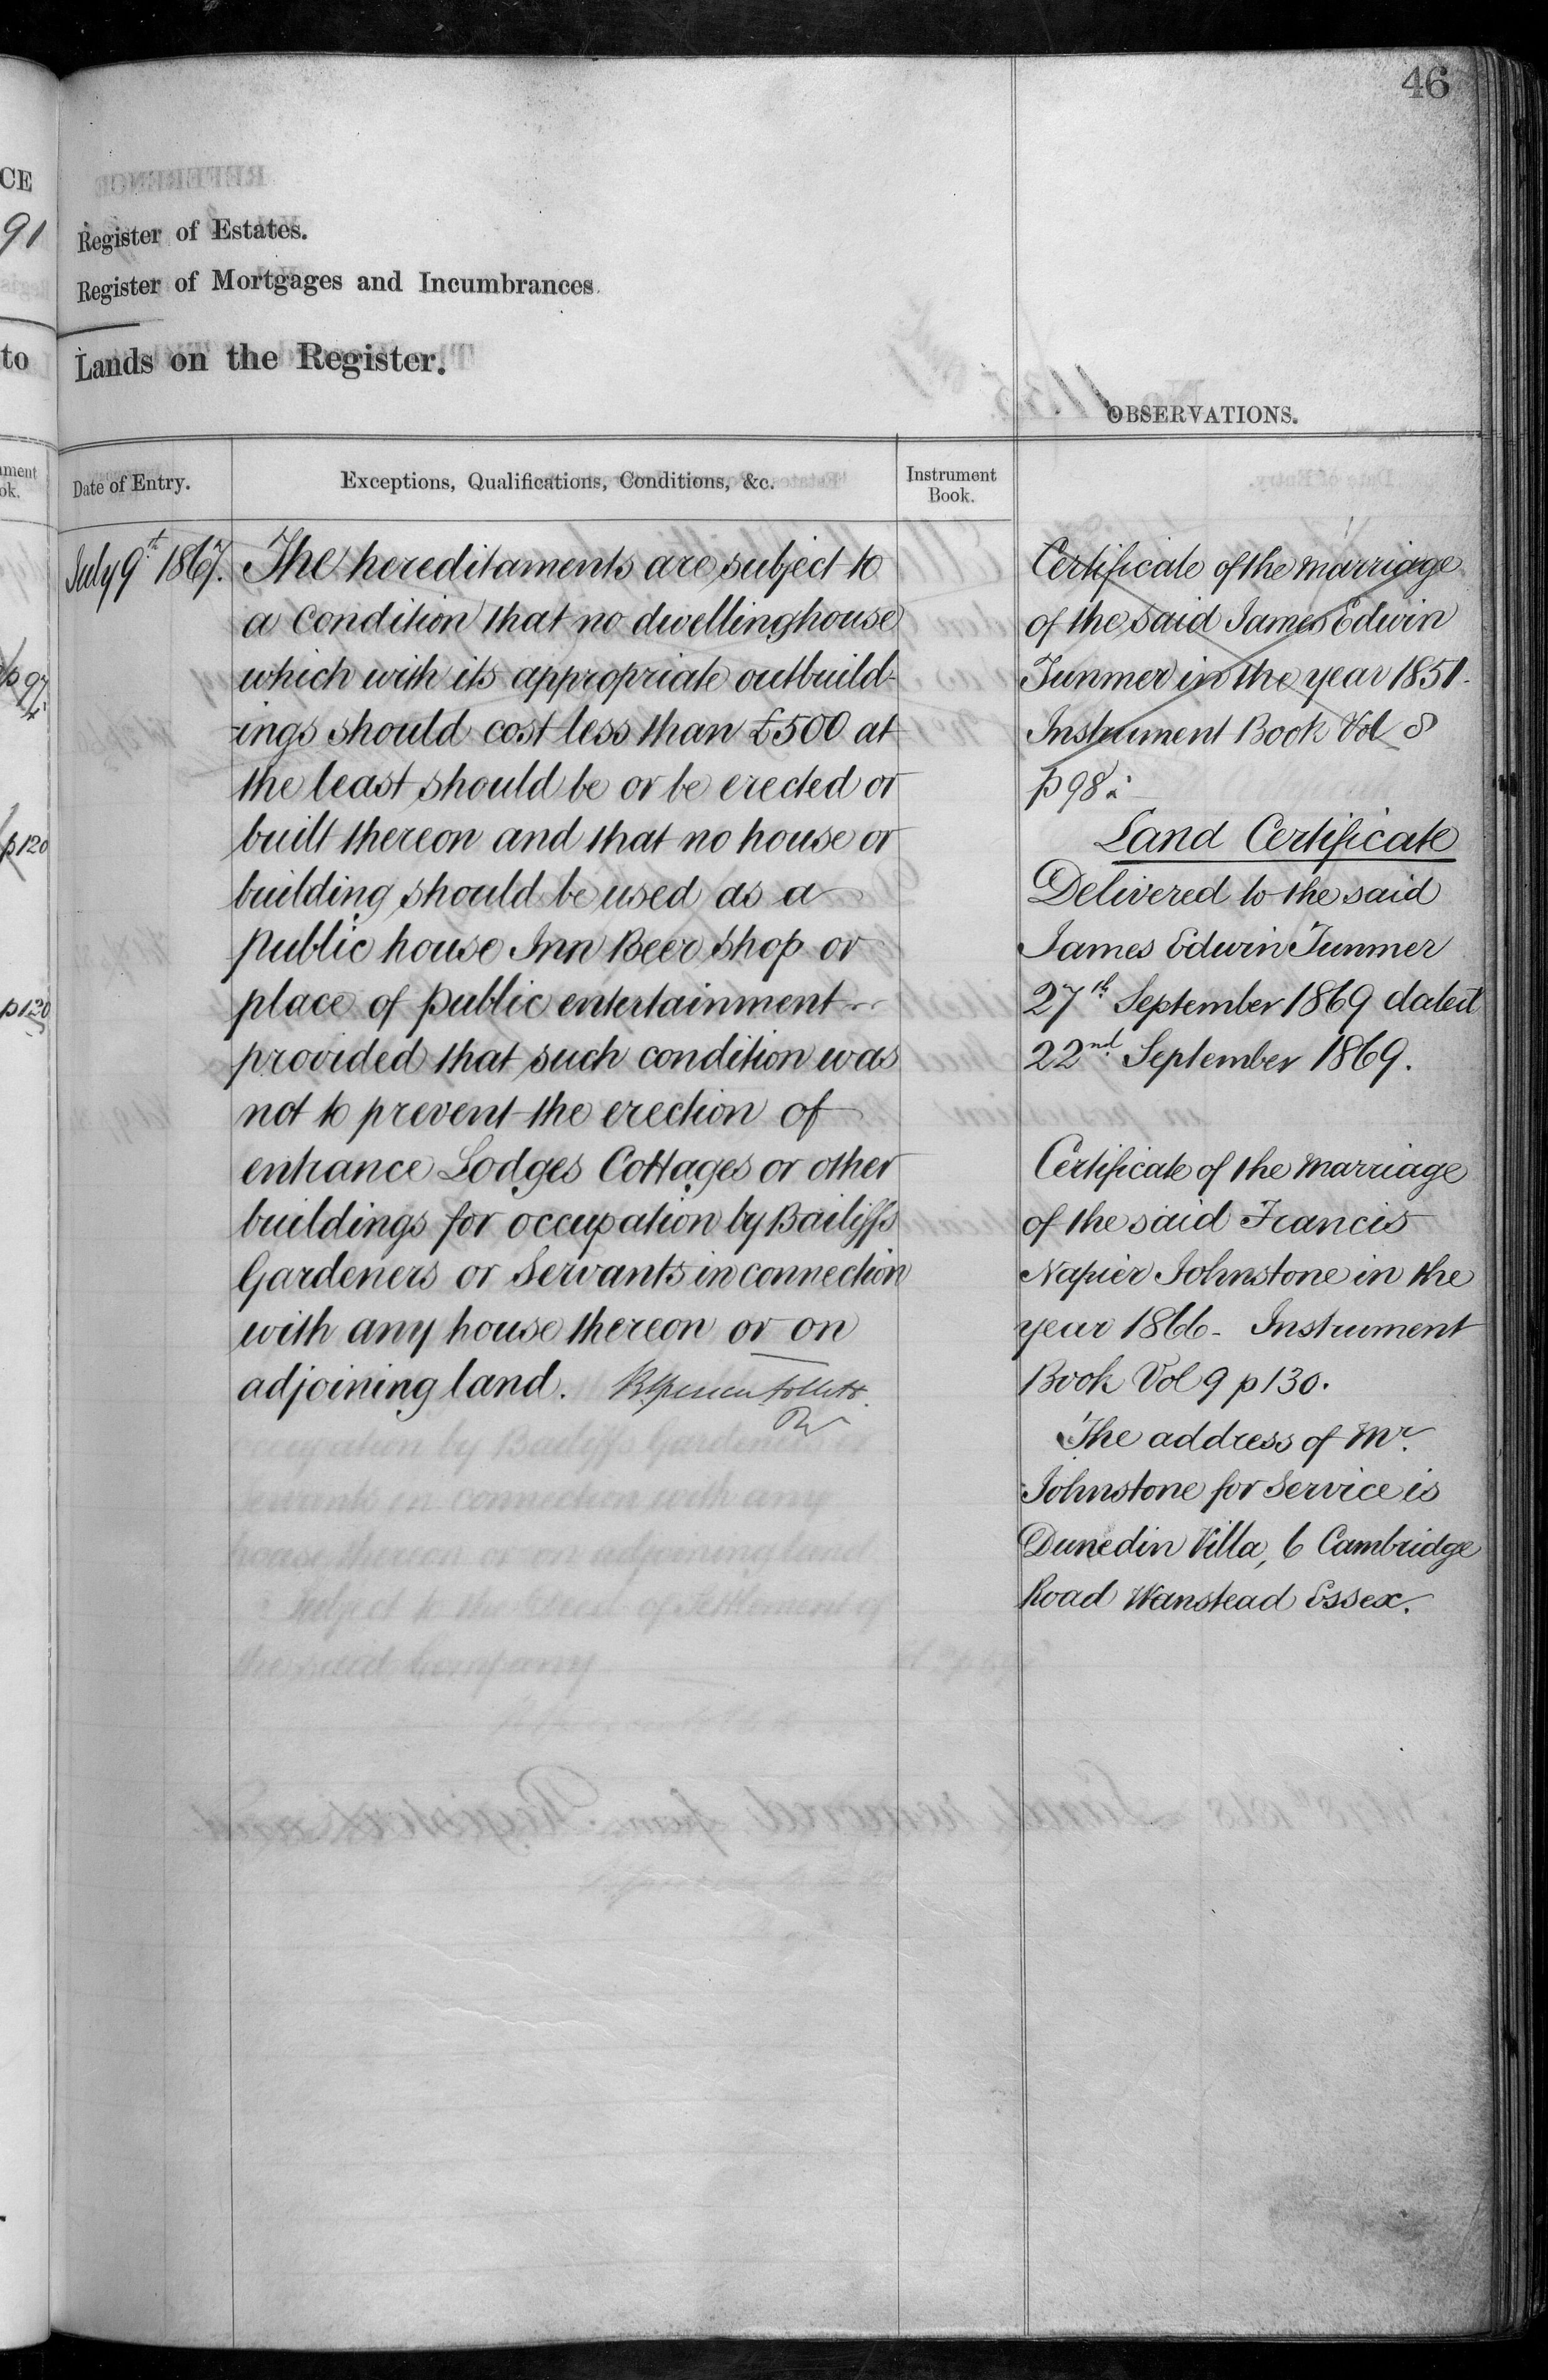 46
CE
91
Register of Estates.
Register of Mortgages and Incumbrances.
to
Lands on the Register.
OBSERVATIONS.
Date of Entry.
Exceptions, Qualifications, Conditions, &c.
Instrument
Book.
July 9th 1867.
The hereditaments are subject to
a condition that no dwellinghouse
which with its appropriate outbuild-
-ings should cost less than £500 at
the least should be or be erected or
built thereon and that no house or
building should be used as a
public house Inn Beer shop or
place of public entertainment
provided that such condition was
not to prevent the erection of
entrance Lodges Cottages or other
buildings for occupation by Bailiffs
Gardeners or Servants in connection
with any house thereon or on
adjoining land.
Certificate of the marriage
of the said James Edwin
Tunmer in the year 1851.
Instrument Book Vol 8
p 98.
Land Certificate
Delivered to the said
James Edwin Tunmer
27th September 1869 dated
22nd September 1869.
Certificate of the marriage
of the said Francis
Napier Johnstone in the
year 1866 - Instrument
Book Vol 9 p 130.
The address of Mr.
Johnstone for service is
Dunedin Villa, 6 Cambridge
Road Wanstead Essex.
p 97
p 120
p 130
occupation by Bailiffs Gardeners or
Servants in connection with any
house thereon or on adjoining land
Subject to the Deed of Settlement of
the said Company